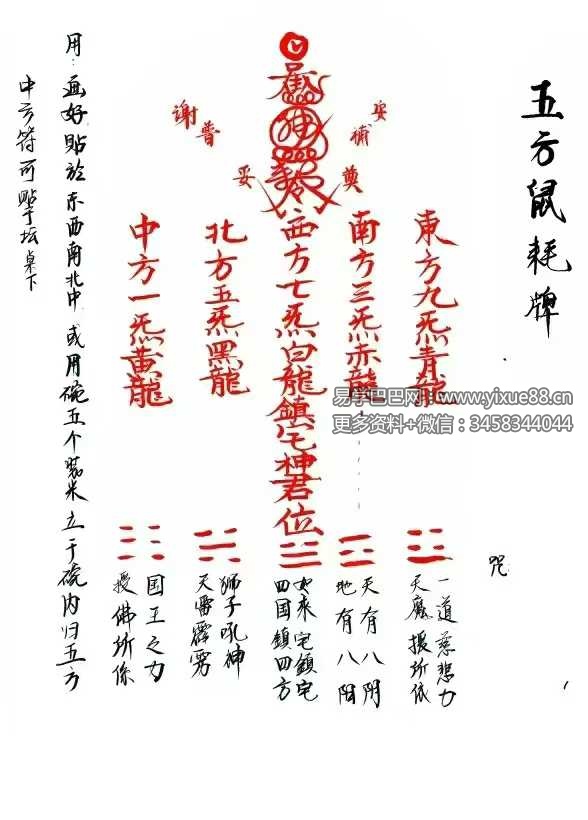 五方鼠耗牌
咒
東方九炁青龍
南方三炁赤龍
西方七炁白龍鎮宅神君位
北方五炁黑龍
中方一炁黃龍
安
補
奠
謝
普
妥
一道慈悲力
天麾援所依
天有八阴
地有八阳
如來宅鎮宅
四国鎮四方
獅子吼神
天雷霹雳
国王之力
授佛所係
用:画好貼於东西南北中或用碗五个装米立于碗内归五方
中方符可贴于坛桌下
易学巴巴网:www.yixue88.cn
更多资料+微信:3458344044